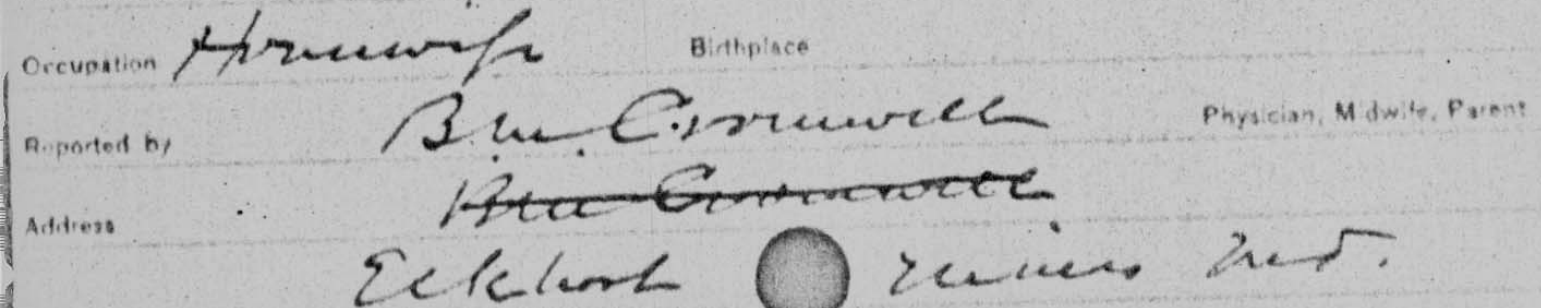 Occupation Housewife Birthplace
Reported by B. M. Cromwell Physician, Midwife, Parent
Address B M Cromwell
Eckhart Mines Md.